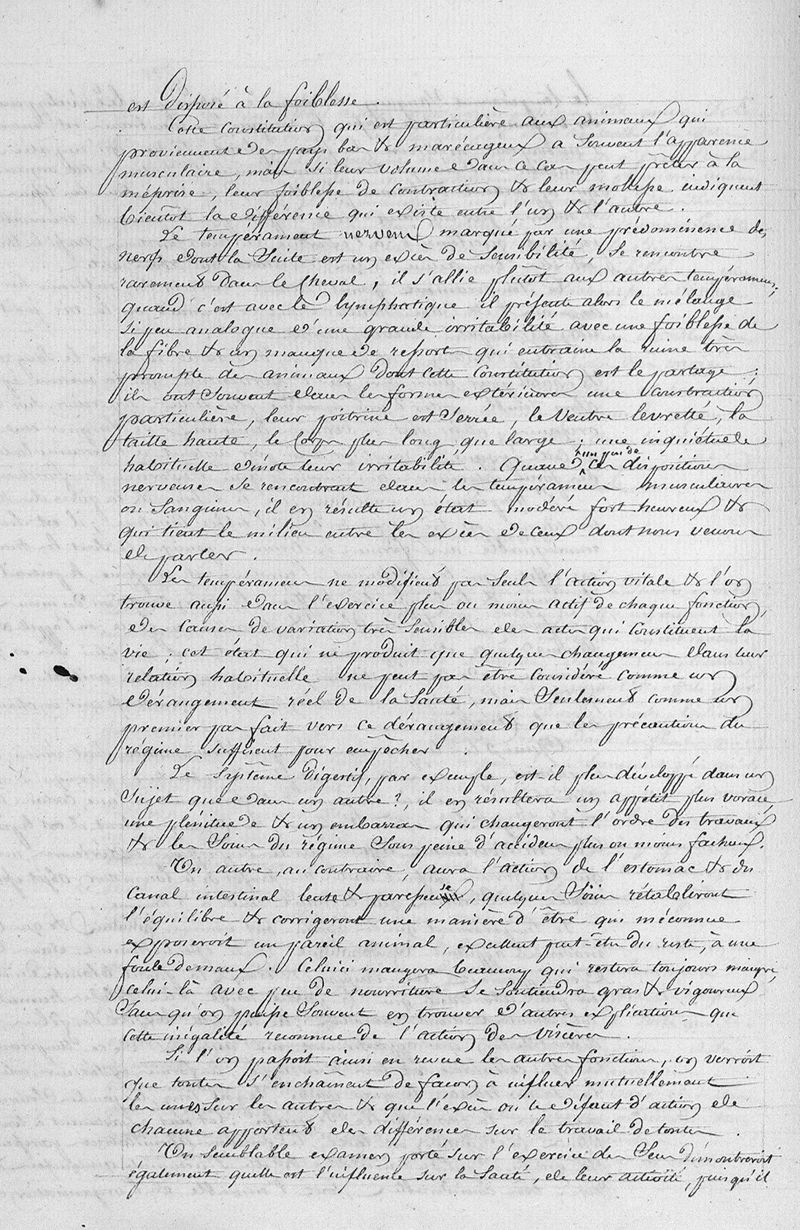 est Disposé à la foiblesse.
Cette constitution qui est particulière aux animaux qui
proviennent des pays bas & marécageux a souvent l'apparence
musculaire, mais si leur volume dans ce cas peut prêter à la
méprise, leur foiblesse de contraction & leur mollesse indiquent
bientôt la différence qui existe entre l'un & l'autre.
Le tempérament nerveux marqué par une prédominence des
nerfs dont la Suite est un excès de Sensibilité, Se rencontre
rarement dans le Cheval, il s'allie plutôt aux autres tempéramens,
quand c'est avec le lymphatique il présente alors le mélange
Si peu analogue d'une grande irritabilité avec une foiblesse de
la fibre & un manque de ressort qui entraine la ruine très
prompte des animaux dont cette constitution est le partage ;
ils ont Souvent dans les formes extérieures une construction
particulière, leur poitrine est Serrée, le Ventre levretté, la
taille haute, le Corps plus long que large ; une inquiétude
habituelle dénote leur irritabilité. Quand un peu de ces dispositions
nerveuses Se rencontrent dans les tempéramens musculaires
ou Sanguins, il en résulte un état modéré fort heureux &
qui tient le milieu entre les excès de ceux dont nous venons
de parler.
Les tempéramens ne modifient pas seuls l'action vitale & l'on
trouve aussi dans l'exercice plus ou moins actif de chaque fonction,
des causes de variation très sensibles des actes qui constituent la
vie ; cet état qui ne produit que quelques changemens dans leur
relation habituelle ne peut pas être considéré comme un
dérangement réel de la Santé, mais Seulement comme un
premier pas fait vers ce dérangement que les précautions du
régime suffisent pour empêcher.
Le Système digestif, par exemple, est il plus développé dans un
Sujet que dans un autre ?, il en résultera un appétit plus vorace,
une plénitude & un embarras qui changeront l'ordre des travaux
& les Soins du régime Sous peine d'accidens plus ou moins facheux.
Un autre, au contraire, aura l'action de l'estomac & du
Canal intestinal lente & paresseuse, quelques Soins rétabliront
l'équilibre & corrigeront une manière d'être qui méconnue
exposeroit un pareil animal, excellent peut être du reste, à une
foule de maux. Celui ci mangera beaucoup qui restera toujours maigre,
celui-là avec peu de nourriture se soutiendra gras & vigoureux,
Sans qu'on puisse Souvent en trouver d'autres explications que
cette inégalité reconnue de l'action des viscères.
Si l'on passoit ainsi en revue les autres fonctions, on verroit
que toutes s'enchaînent de façon à influer mutuellement
les unes sur les autres & que l'excès ou le défaut d'action de
chacune apportent des différences sur le travail de toutes.
Un semblable examen porté sur l'exercice des Sens démontreroit
également quelle est l'influence sur la Santé, de leur activité, puisqu'il